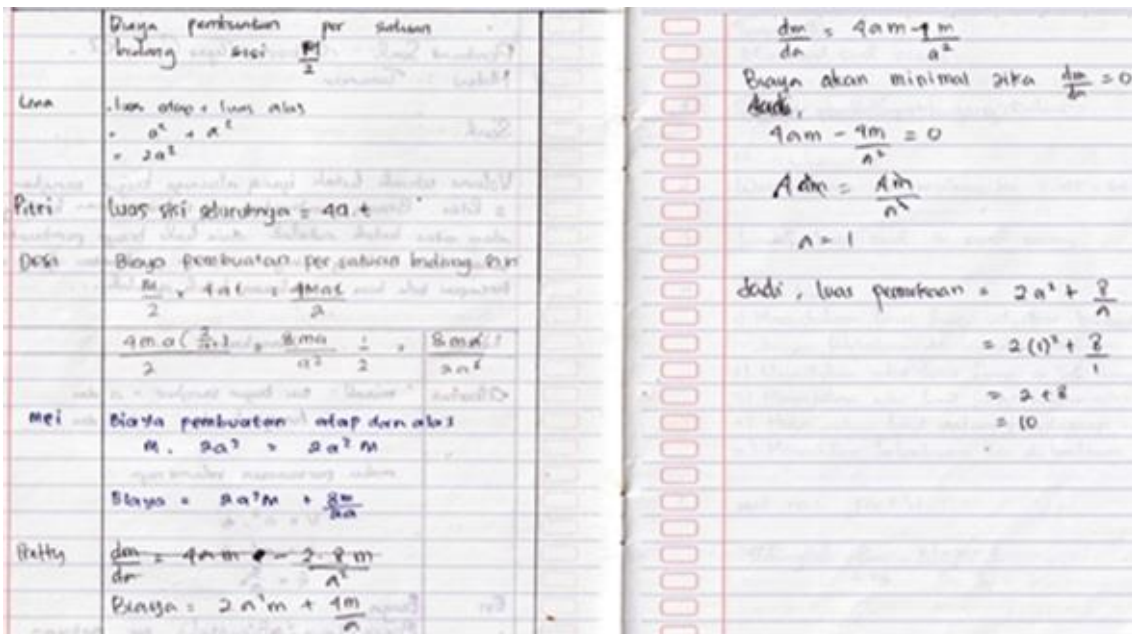 Biaya pembuatan per satuan
bidang sisi M/2
Lena luas atap + luas alas
= a² + a²
= 2a²
Pitri luas sisi seluruhnya = 4a.t
Desi Biaya pembuatan per satuan bidang sisi
M/2 × 4at = 4Mat/2
8ma/a² · 1/2 =
Mei Biaya pembuatan atap dan alas
M. 2a² = 2a² M
Biaya = 2a²M + 8m/2a
Pretty dm/da = 4am - 2.8m/a²
Biaya = 2a²m + 4m/a
dm/da = 4am - 4m/a²
Biaya akan minimal jika dm/da = 0
Jadi,
4am - 4m/a² = 0
4am = 4m/a²
a = 1
Jadi, luas permukaan = 2a² + 8/a
= 2(1)² + 8/1
= 2 + 8
= 10